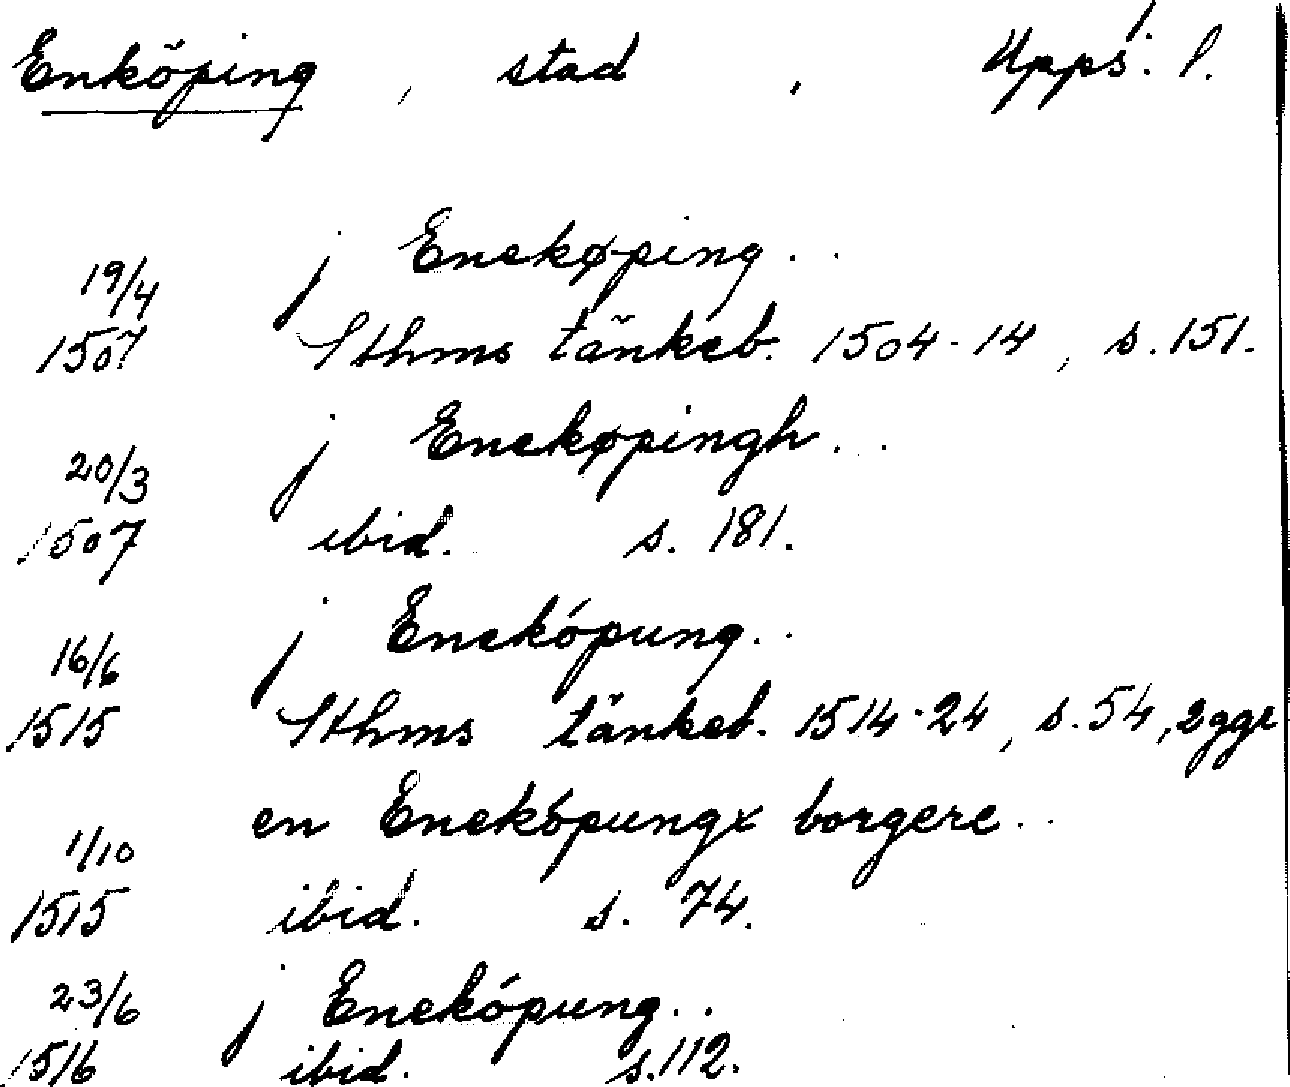 Enköping, stad, Upps. l.
j Enekøping..
19/4
1507 Sthms tänkeb. 1504-14, s. 151.
j Enekøpingh..
20/3
1507 ibid. s. 181.
j Enekópung..
16/6
1515 Sthms tänkeb. 1514-24, s. 54, 2 ggr
en Enekópungx borgere..
1/10
1515 ibid. s. 74.
23/6 j Enekópung..
1516 ibid. s. 112.